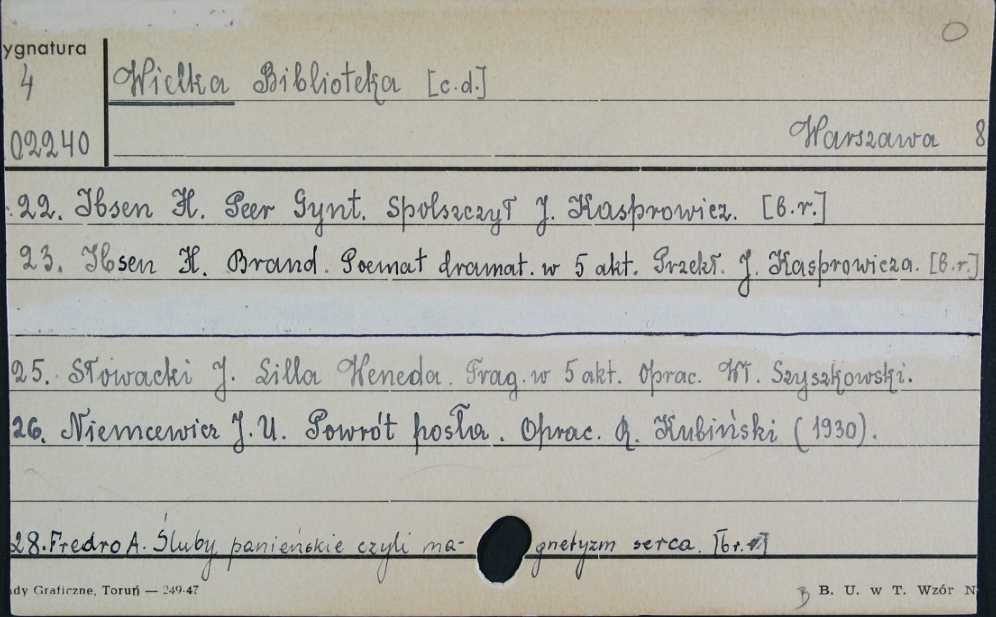 ygnatura
4
02240
Wielka Biblioteka [c.d.]
Warszawa 8
22. Ibsen H. Peer Gynt. Spolszczył J. Kasprowicz. [b.r.]
23. Ibsen H. Brand. Poemat dramat. w 5 akt. Przekł. J. Kasprowicza. [b.r.]
25. Słowacki J. Lilla Weneda. Trag. w 5 akt. Oprac. Wł. Szyszkowski.
26. Niemcewicz J. U. Powrót posła. Oprac. R. Kubiński (1930).
28. Fredro A. Śluby panieńskie czyli magnetyzm serca. [br.]
dy Graficzne, Toruń — 249-47
B. U. w T. Wzór N